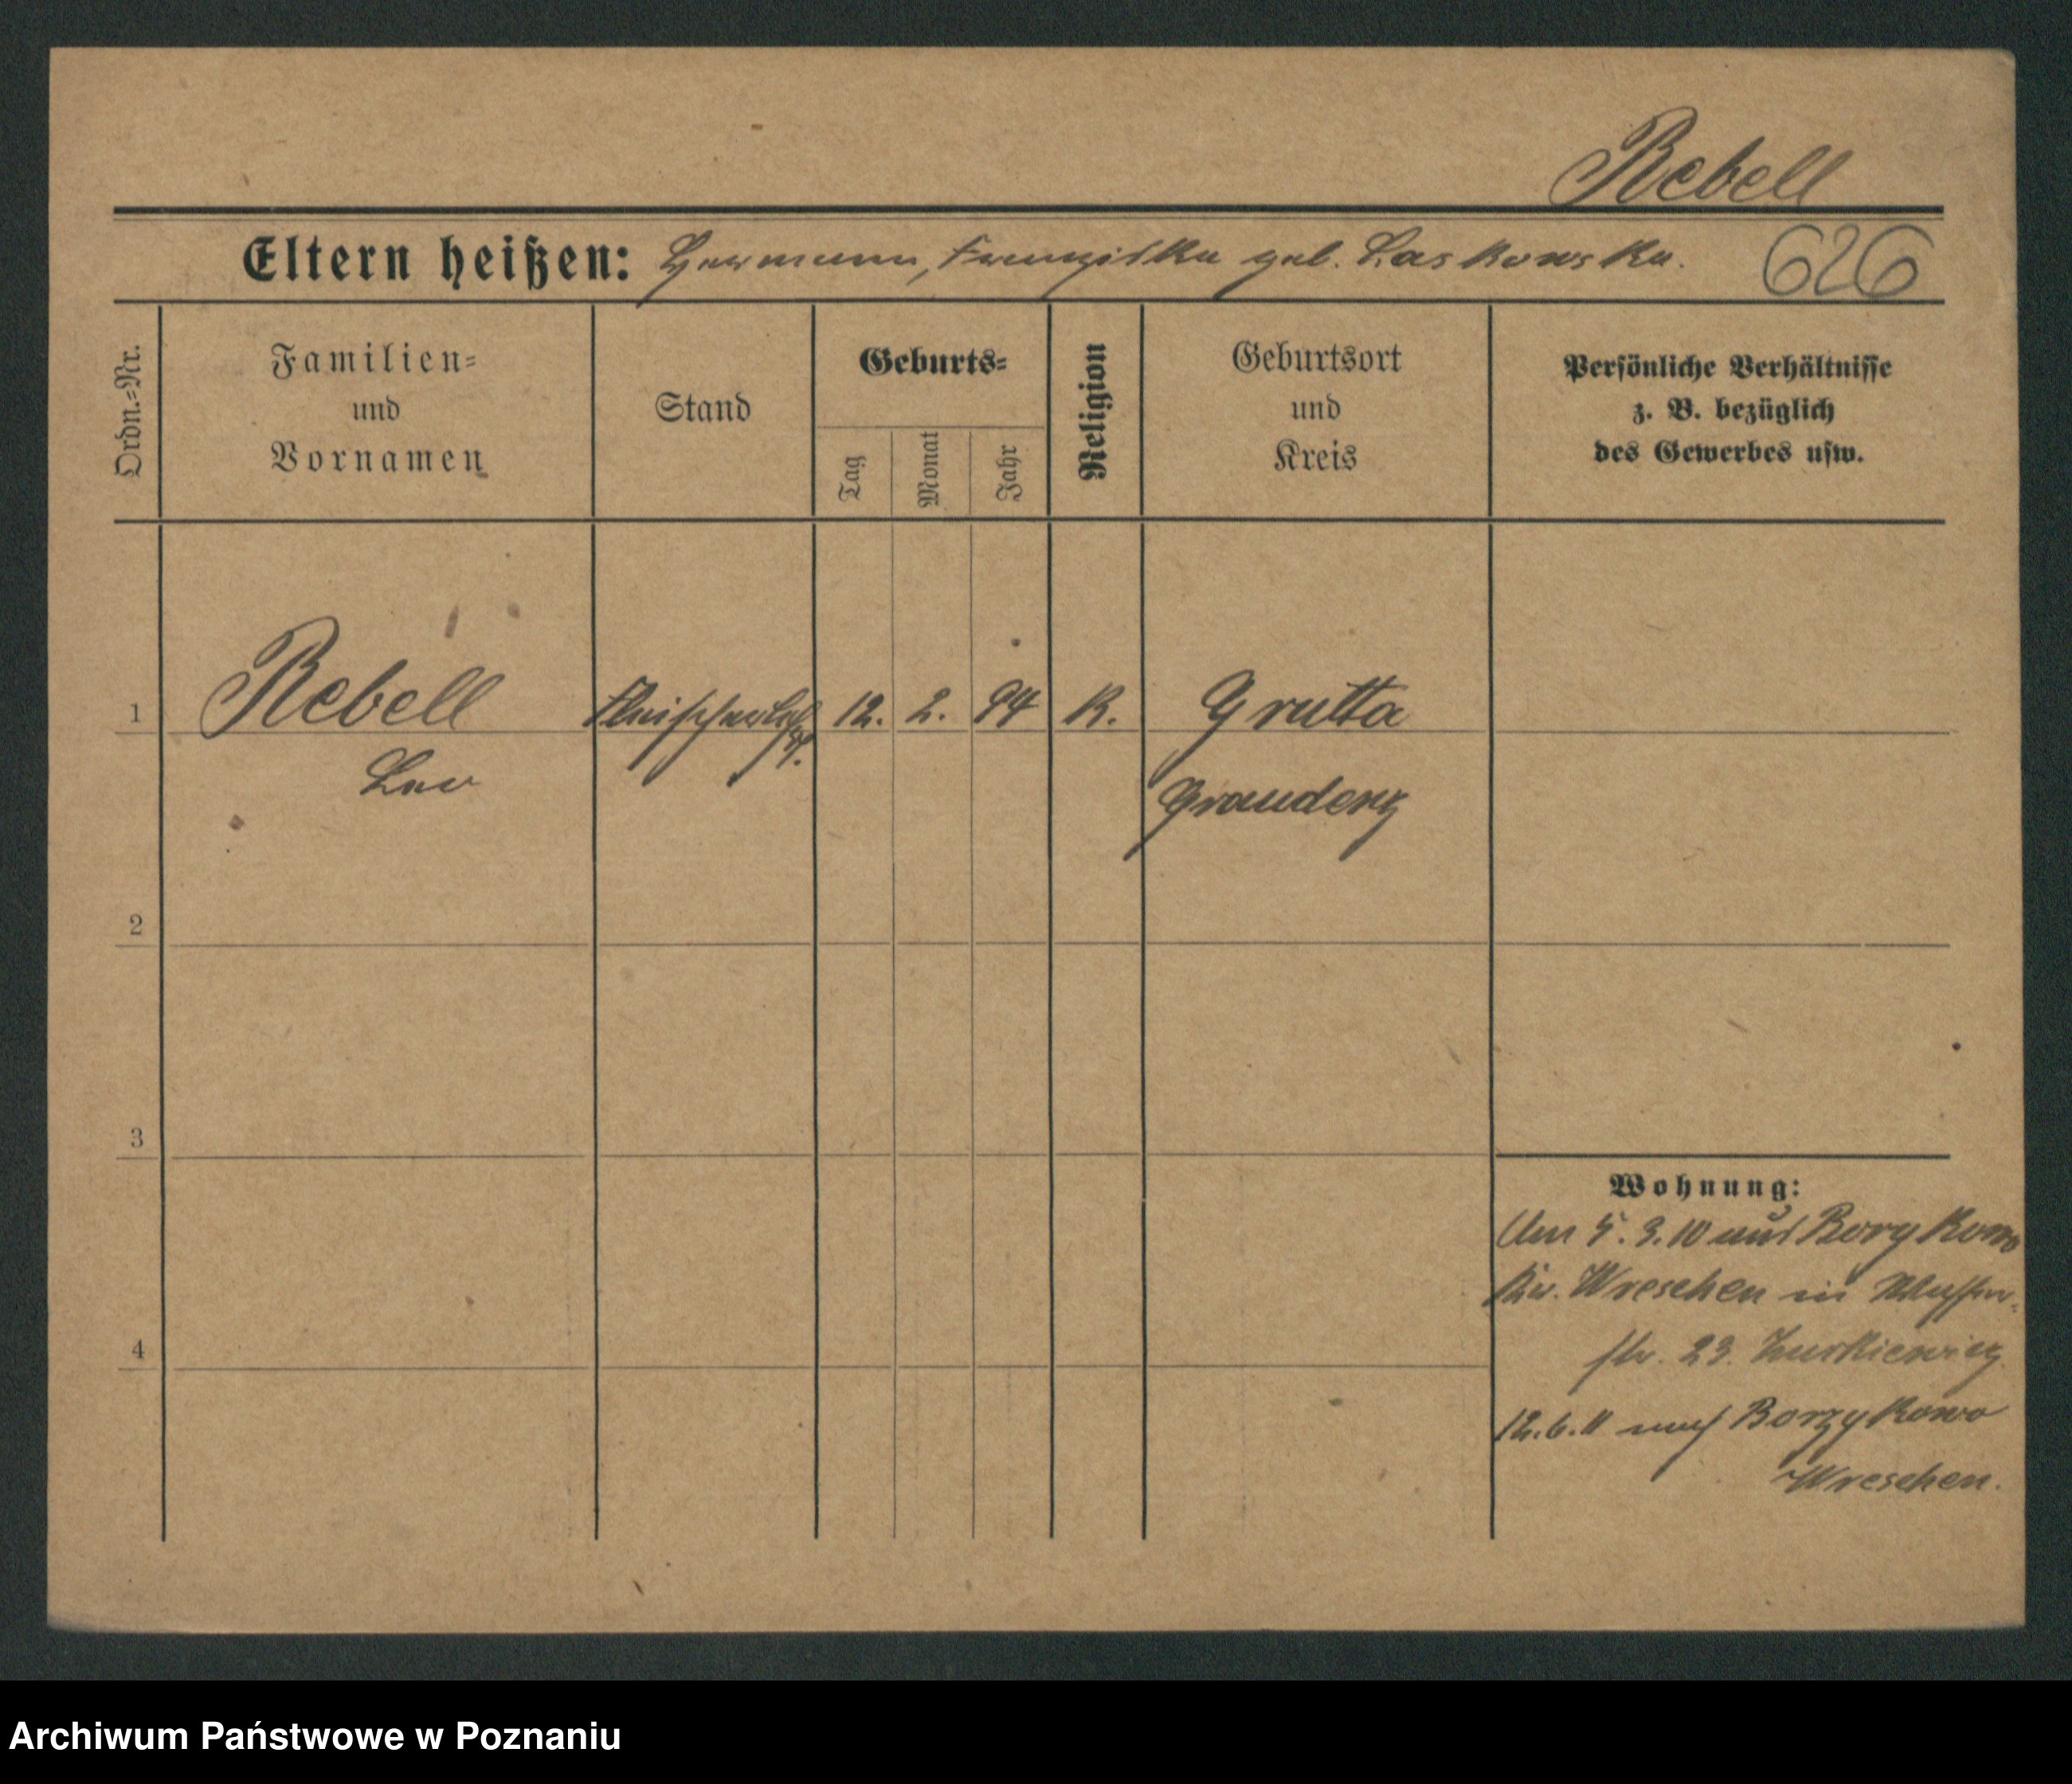 Rebell
Eltern heißen: Hermann, Franziska geb. Laskowska.
626
Ordn.=Nr.
Familien=
und
Vornamen
Stand
Geburts=
Tag
Monat
Jahr
Religion
Geburtsort
und
Kreis
Persönliche Verhältnisse
z. B. bezüglich
des Gewerbes usw.
1 Rebell 12. 2. 94 K. Grutta
Leo Graudenz
2
3
4
Wohnung:
Am 5.3.10 aus Borzykowo
Kr. Wreschen in
str. 23.
12.6.11 nach Borzykowo
Wreschen.
Archiwum Państwowe w Poznaniu